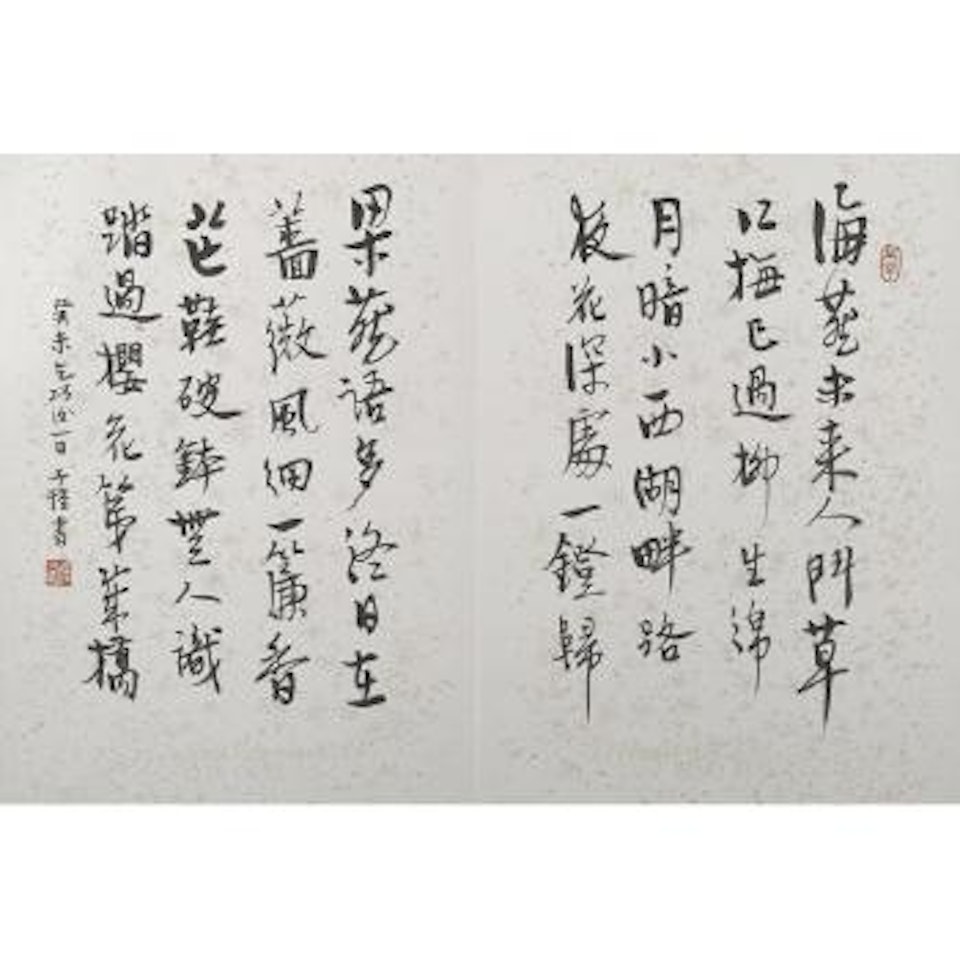 海燕未来人鬥草
江梅已過柳生綿
月暗小西湖畔路
夜花深處一鐙歸
梁燕語多終日在
薔薇風細一簾香
芒鞋破鉢無人識
踏過櫻花第幾橋
癸未乞巧後一日子愷書